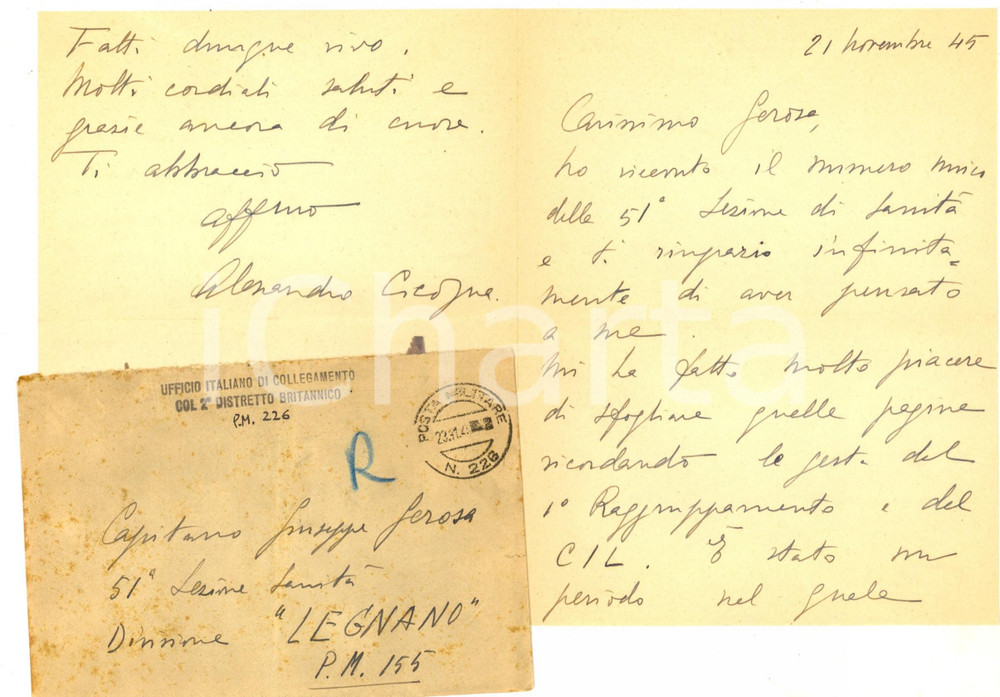 21 novembre 45
Carissimo Gerosa,
ho ricevuto il numero unico
della 51ª Sezione di Sanità
e ti ringrazio infinita=
mente di aver pensato
a me.
Mi ha fatto molto piacere
di sfogliare quelle pagine
ricordando le gesta del
1º Raggruppamento e del
CIL. È stato un
periodo nel quale
Fatti dunque vivo.
Molti cordiali saluti e
grazie ancora di cuore.
Ti abbraccio
aff.mo
Alessandro Cicogna.
UFFICIO ITALIANO DI COLLEGAMENTO
COL 2º DISTRETTO BRITANNICO
P.M. 226
R
POSTA MILITARE
N. 226
Capitano Giuseppe Gerosa
51ª Sezione Sanità
Divisione "LEGNANO"
P.M. 155
iCharta